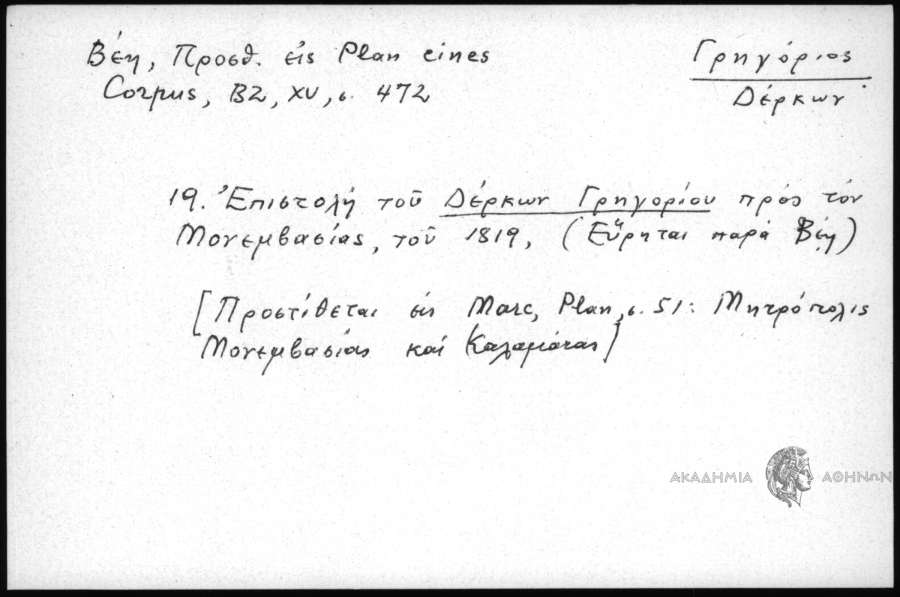 Βέη, Προσθ. εἰς Plan eines
Corpus, BZ, XV, σ. 472
Γρηγόριος
Δέρκων
19. Ἐπιστολή τοῦ Δέρκων Γρηγορίου πρός τόν
Μονεμβασίας, τοῦ 1819, (Εὕρηται παρά Βέη)
[Προστίθεται εἰς Marc, Plan, σ. 51: Μητρόπολις
Μονεμβασίας καί Καλαμάτας]
ΑΚΑΔΗΜΙΑ ΑΘΗΝΩΝ